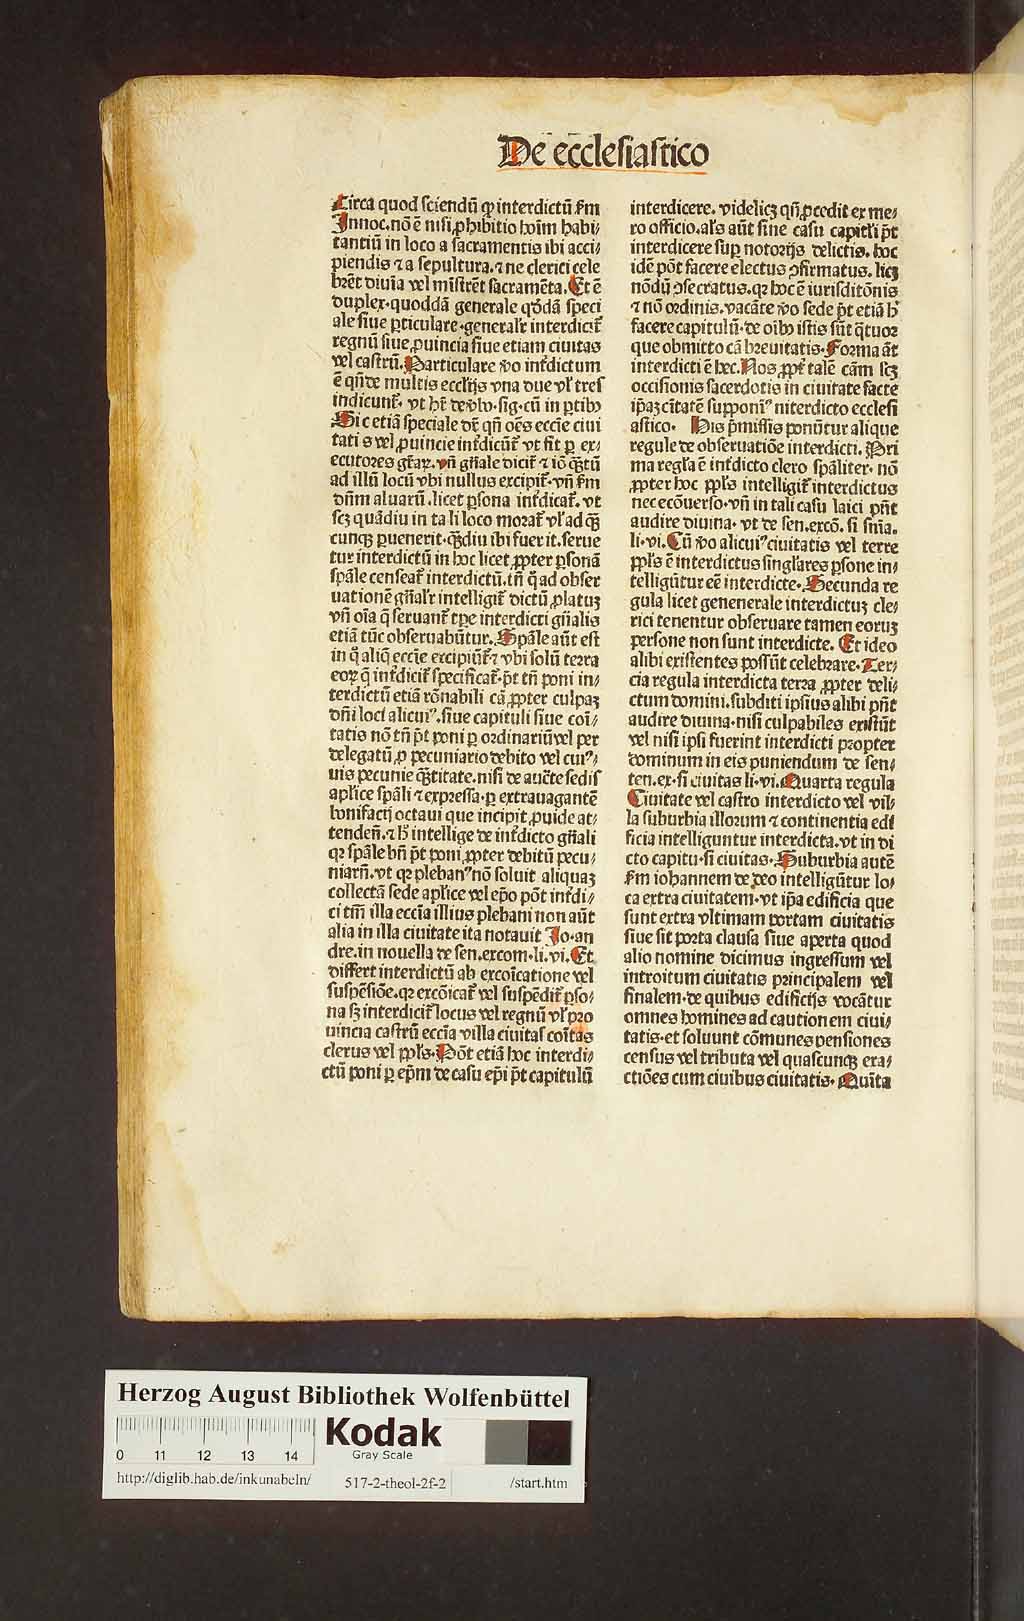 De ecclesiastico
Circa quod sciendū ꝙ interdictū ẜm
Innoc. nō ē nisi ꝓhibitio hoīm habi⸗
tantiū in loco a sacramentis ibi acci⸗
piendis ⁊ a sepultura. ⁊ ne clerici cele
brēt diuīa vel mīstrēt sacramēta. Et ē
duplex. quoddā generale qd̓dā speci
ale siue ꝑticulare. general'r interdicit᷑
regnū siue ꝓuincia siue etiam ciuitas
vel castrū. Particulare v̓o int᷑dictum
ē qn̄ de multis eccl'ijs vna due vl' tres
indicunt᷑. vt ht᷑ de v̓bo. sig. cū in ꝑtibꝰ
Sic etiā speciale dr̄ qn̄ oēs eccīe ciui
tatis vel ꝓuincie int᷑dicūt᷑ vt fit ꝑ ex⸗
ecutores gr̄aꝝ. vn̄ gn̄ale dicit᷑ ⁊ iō q̄ꝫtū
ad illū locū vbi nullus excipit᷑. vn̄ ẜm
dn̄m aluarū. licet ꝑsona int᷑dicat᷑. vt
scꝫ quādiu in tali loco morat᷑ vl' ad q̄ꝫ
cunqꝫ ꝑuenerit. q̄ꝫdiu ibi fuerit. serue
tur interdictū in hoc licet ꝓpter ꝑsonā
spāle censeat᷑ interdictū. tn̄ q̄ ad obser
uationē gn̄al'r intelligit᷑ dictū ꝓlatuꝫ
vn̄ oīa q̄ seruant᷑ tꝑe interdicti gn̄alis
etiā tūc obseruabūtur. Spāle aūt est
in q̄ aliq̄ eccīe excipiūt᷑ ⁊ vbi solū terra
eoꝝ q̄ int᷑dicit᷑ specificat᷑. p̄t tn̄ poni in⸗
terdictū etiā rōnabili cā ꝓpter culpaꝫ
dn̄i loci alicuiꝰ. siue capituli siue coī⸗
tatis nō tn̄ p̄t poni ꝑ ordinariū vel per
delegatū ꝓ pecuniario debito vel cuiꝰ⸗
uis pecunie q̄ꝫtitate. nisi de auc̄te sedis
apl'ice spāli ⁊ expressa. ꝑ extrauagantē
bonifacij octaui que incipit ꝓuide at⸗
tenden̄. ⁊ h̓ intellige de int᷑dicto gn̄ali
qꝛ spāle bn̄ p̄t poni ꝓpter debitū pecu⸗
niarū. vt qꝛ plebanꝰ nō soluit aliquaꝫ
collectā sede apl'ice vel ep̄o pōt int᷑di⸗
ci tm̄ illa eccīa illius plebani non aūt
alia in illa ciuitate ita notauit Jo. an
dre. in nouella de sen. excom. li. vi. Et
differt interdictū ab excoīcatione vel
suspēsiōe. qꝛ excōicat᷑ vel suspēdit᷑ ꝑso⸗
na sꝫ interdicit᷑ locus vel regnū vl' pro
uincia castrū eccīa villa ciuitas coītas
clerus vel ppl's. Pōt etiā hoc interdi⸗
ctū poni ꝑ ep̄m de casu ep̄i p̄t capitulū
interdicere. videlicꝫ qn̄ ꝓcedit ex me⸗
ro officio. al's aūt sine casu capitl'i p̄t
interdicere suꝑ notorijs delictis. hoc
idē pōt facere electus ꝯfirmatus. licꝫ
nōdū ꝯsecratus. qꝛ hoc ē iurisditōnis
⁊ nō ordinis. vacāte v̓o sede p̄t etiā h̓
facere capitulū. de oībꝰ istis sūt q̄tuor
que obmitto cā breuitatis. Forma āt
interdicti ē hec. Nos ꝓpt᷑ talē cām scꝫ
occisionis sacerdotis in ciuitate facte
ip̄aꝫ cītatē supponimꝰ niterdicto ecclesi
astico. His p̄missis ponūtur alique
regule de obseruatiōe interdicti. Pri
ma regl'a ē int᷑dicto clero spāliter. nō
ꝓpter hoc ppl's intelligit᷑ interdictus
nec ecōuerso. vn̄ in tali casu laici pn̄t
audire diuina. vt de sen. excō. si sn̄ia.
li. vi. Cū v̓o alicuiꝰ ciuitatis vel terre
ppl's ē interdictus singl'ares ꝑsone in⸗
telligūtur eē interdicte. Secunda re
gula licet genenerale interdictuꝫ cle⸗
rici tenentur obseruare tamen eoruꝫ
persone non sunt interdicte. Et ideo
alibi existentes possūt celebrare. Ter⸗
cia regula interdicta terra ꝓpter deli⸗
ctum domini. subditi ipsius alibi pn̄t
audire diuina. nisi culpabiles existūt
vel nisi ipsi fuerint interdicti propter
dominum in eis puniendum de sen⸗
ten. ex. si ciuitas li. vi. Quarta regula
Ciuitate vel castro interdicto vel vil⸗
la suburbia illorum ⁊ continentia edi
ficia intelliguntur interdicta. vt in di
cto capitu. si ciuitas. Suburbia autē
ẜm iohannem de deo intelligūtur lo⸗
ca extra ciuitatem. vt ip̄a edificia que
sunt extra vltimam portam ciuitatis
siue sit porta clausa siue aperta quod
alio nomine dicimus ingressum vel
introitum ciuitatis principalem vel
finalem. de quibus edificijs vocātur
omnes homines ad cautionem ciui⸗
tatis. et soluunt cōmunes pensiones
census vel tributa vel quascunqꝫ exa⸗
ctiōes cum ciuibus ciuitatis. Quīta
Herzog August Bibliothek Wolfenbüttel
0 11 12 13 14
Kodak
Gray Scale
http://diglib.hab.de/inkunabeln/ 517-2-theol-2f-2 /start.htm